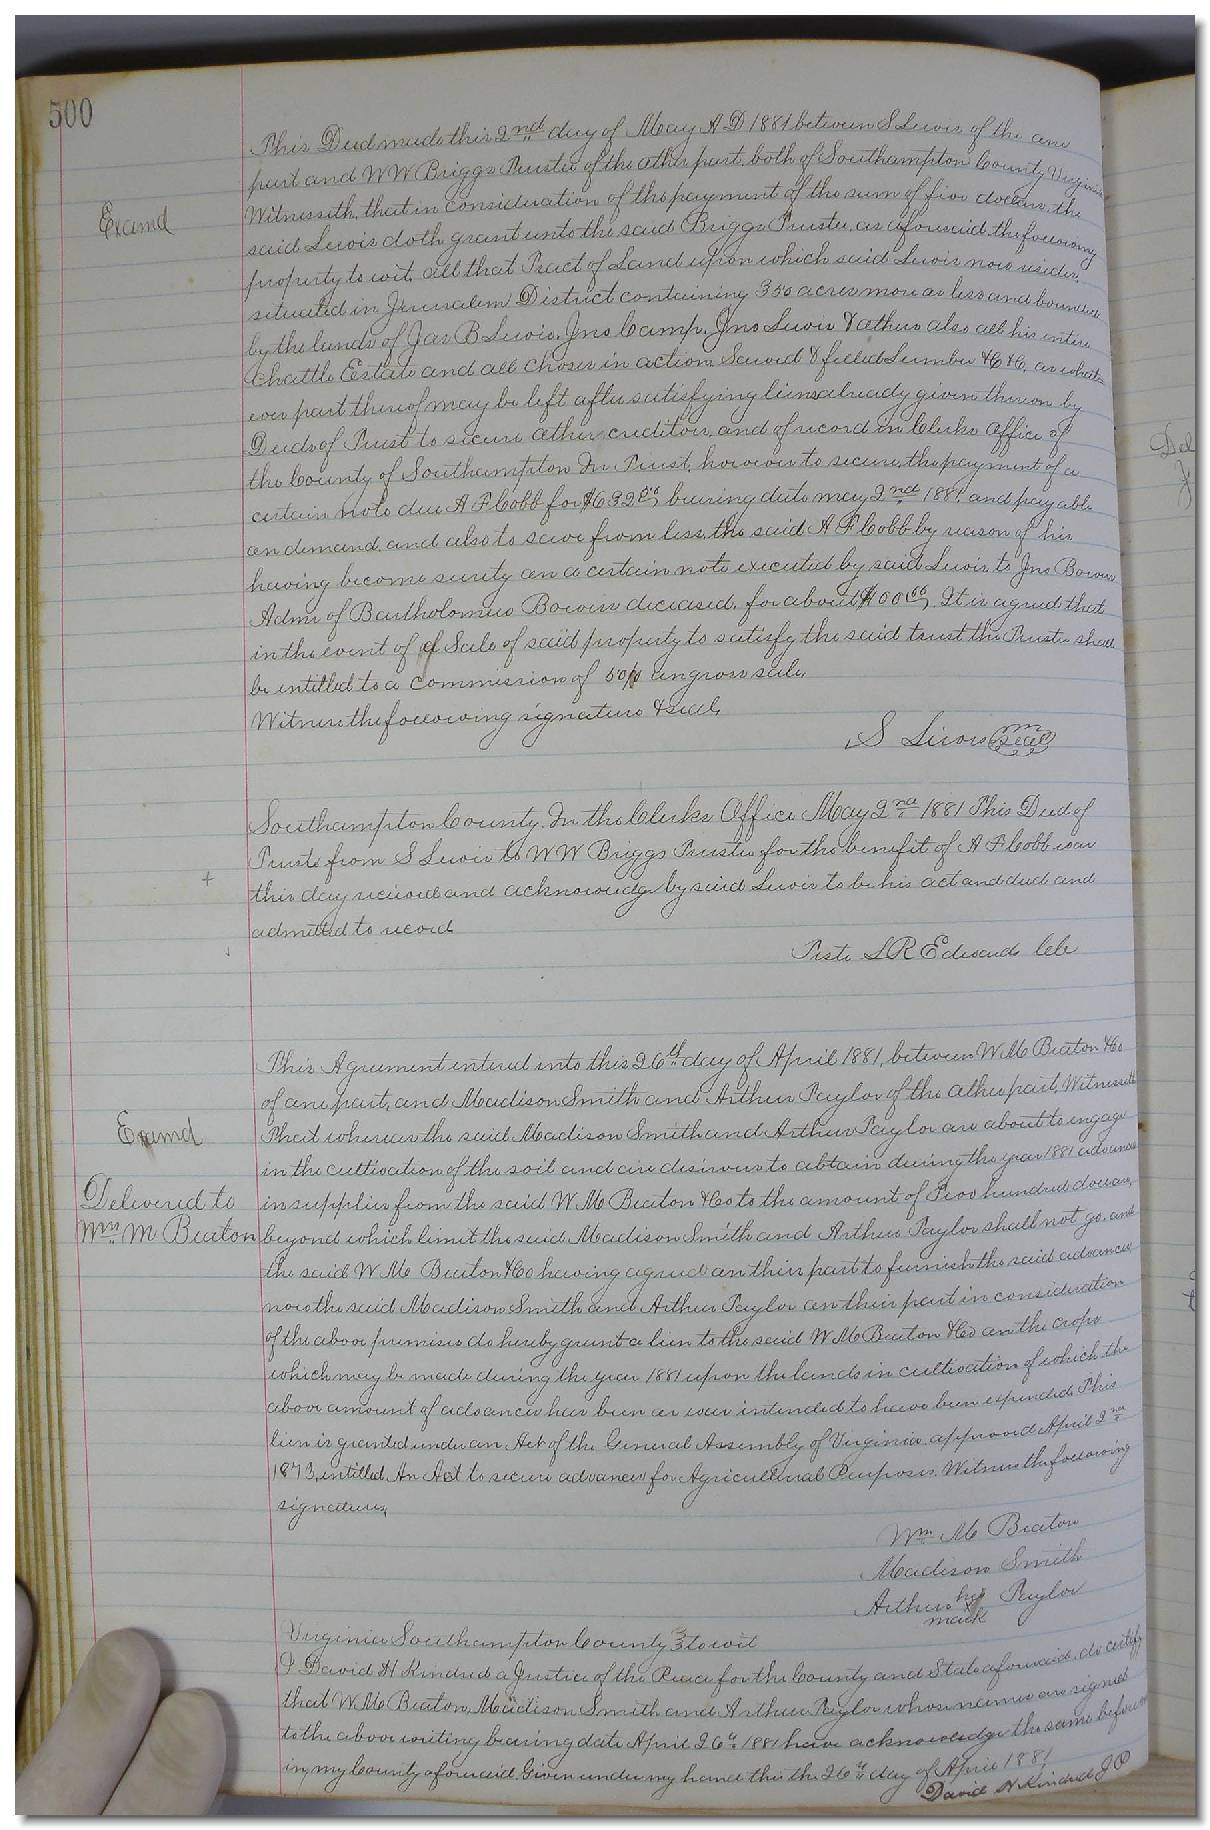 500
This Deed made this 2nd day of May A D 1881 between S Lewis of the one
part and W W Briggs Trustee of the other part, both of Southampton County Virginia
Examd
Witnesseth, that in consideration of the payment of the sum of five dollars, the
said Lewis doth grant unto the said Briggs Trustee, as aforesaid the following
property to wit, all that Tract of Land upon which said Lewis now resides,
situated in Jerusalem District containing 350 acres more or less and bounded
by the lands of Jas B Lewis, Jno Camp, Jno Lewis & others also all his entire
Chattle Estate and all choses in action Sawed & felled Lumber &C &C, or what
ever part thereof may be left after satisfying liens already given thereon by
Deeds of Trust to secure other creditors, and of record in Clerks Office of
the County of Southampton In Trust, however to secure, the payment of a
certain note due A P Cobb for $632 bearing date may 2nd 1881 and payable
on demand, and also to save from loss, the said A P Cobb by reason of his
having become surety on a certain note executed by said Lewis to Jno Bowers
Admr of Bartholomew Bowers deceased, for about $100.00, It is agreed that
in the event of Sale of said property to satisfy the said trust the Trustee shall
be entitled to a commission of 5 0/0 on gross sale,
Witness the following signature & seal,
S Lewis Seal
Southampton County, In the Clerks Office May 2nd 1881 This Deed of
Truste from S Lewis to W W Briggs Trustee for the benefit of A P Cobb was
this day received and acknowledg by said Lewis to be his act and deed and
admitted to record
Teste L R Edwards Clk
This Agreement entered into this 26th day of April 1881, between W M Beaton & Co
of one part, and Madison Smith and Arthur Taylor of the other part, Witnesseth
Examd
That whereas the said Madison Smith and Arthur Taylor are about to engage
in the cultivation of the soil and are desirous to obtain during the year 1881 advances
Delivered to
in supplies from the said W M Beaton & Co to the amount of Two hundred dollars,
Wm M Beaton
beyond which limit the said Madison Smith and Arthur Taylor shall not go, and
the said W M Beaton & Co having agreed on their part to furnish the said advances
now the said Madison Smith and Arthur Taylor on their part in consideration
of the above premises do hereby grant a lien to the said W M Beaton & Co on the crops
which may be made during the year 1881 upon the lands in cultivation of which the
above amount of advances has been or was intended to have been expended This
lien is granted under an Act of the General Assembly of Virginia approved April 2nd
1873, entitled An Act to secure advances for Agricultural Purposes. Witness the following
signatures,
Wm M Beaton
Madison Smith
Arthur his Taylor
mark
Virginia Southampton County to wit
I David H Kindred a Justice of the Peace for the County and State aforesaid, do certify
that W M Beaton, Madison Smith and Arthur Taylor whose names are signed
to the above writing bearing date April 26th 1881 have acknowledge the same before me
in my County aforesaid. Given under my hand this the 26th day of April 1881
David H Kindred J P